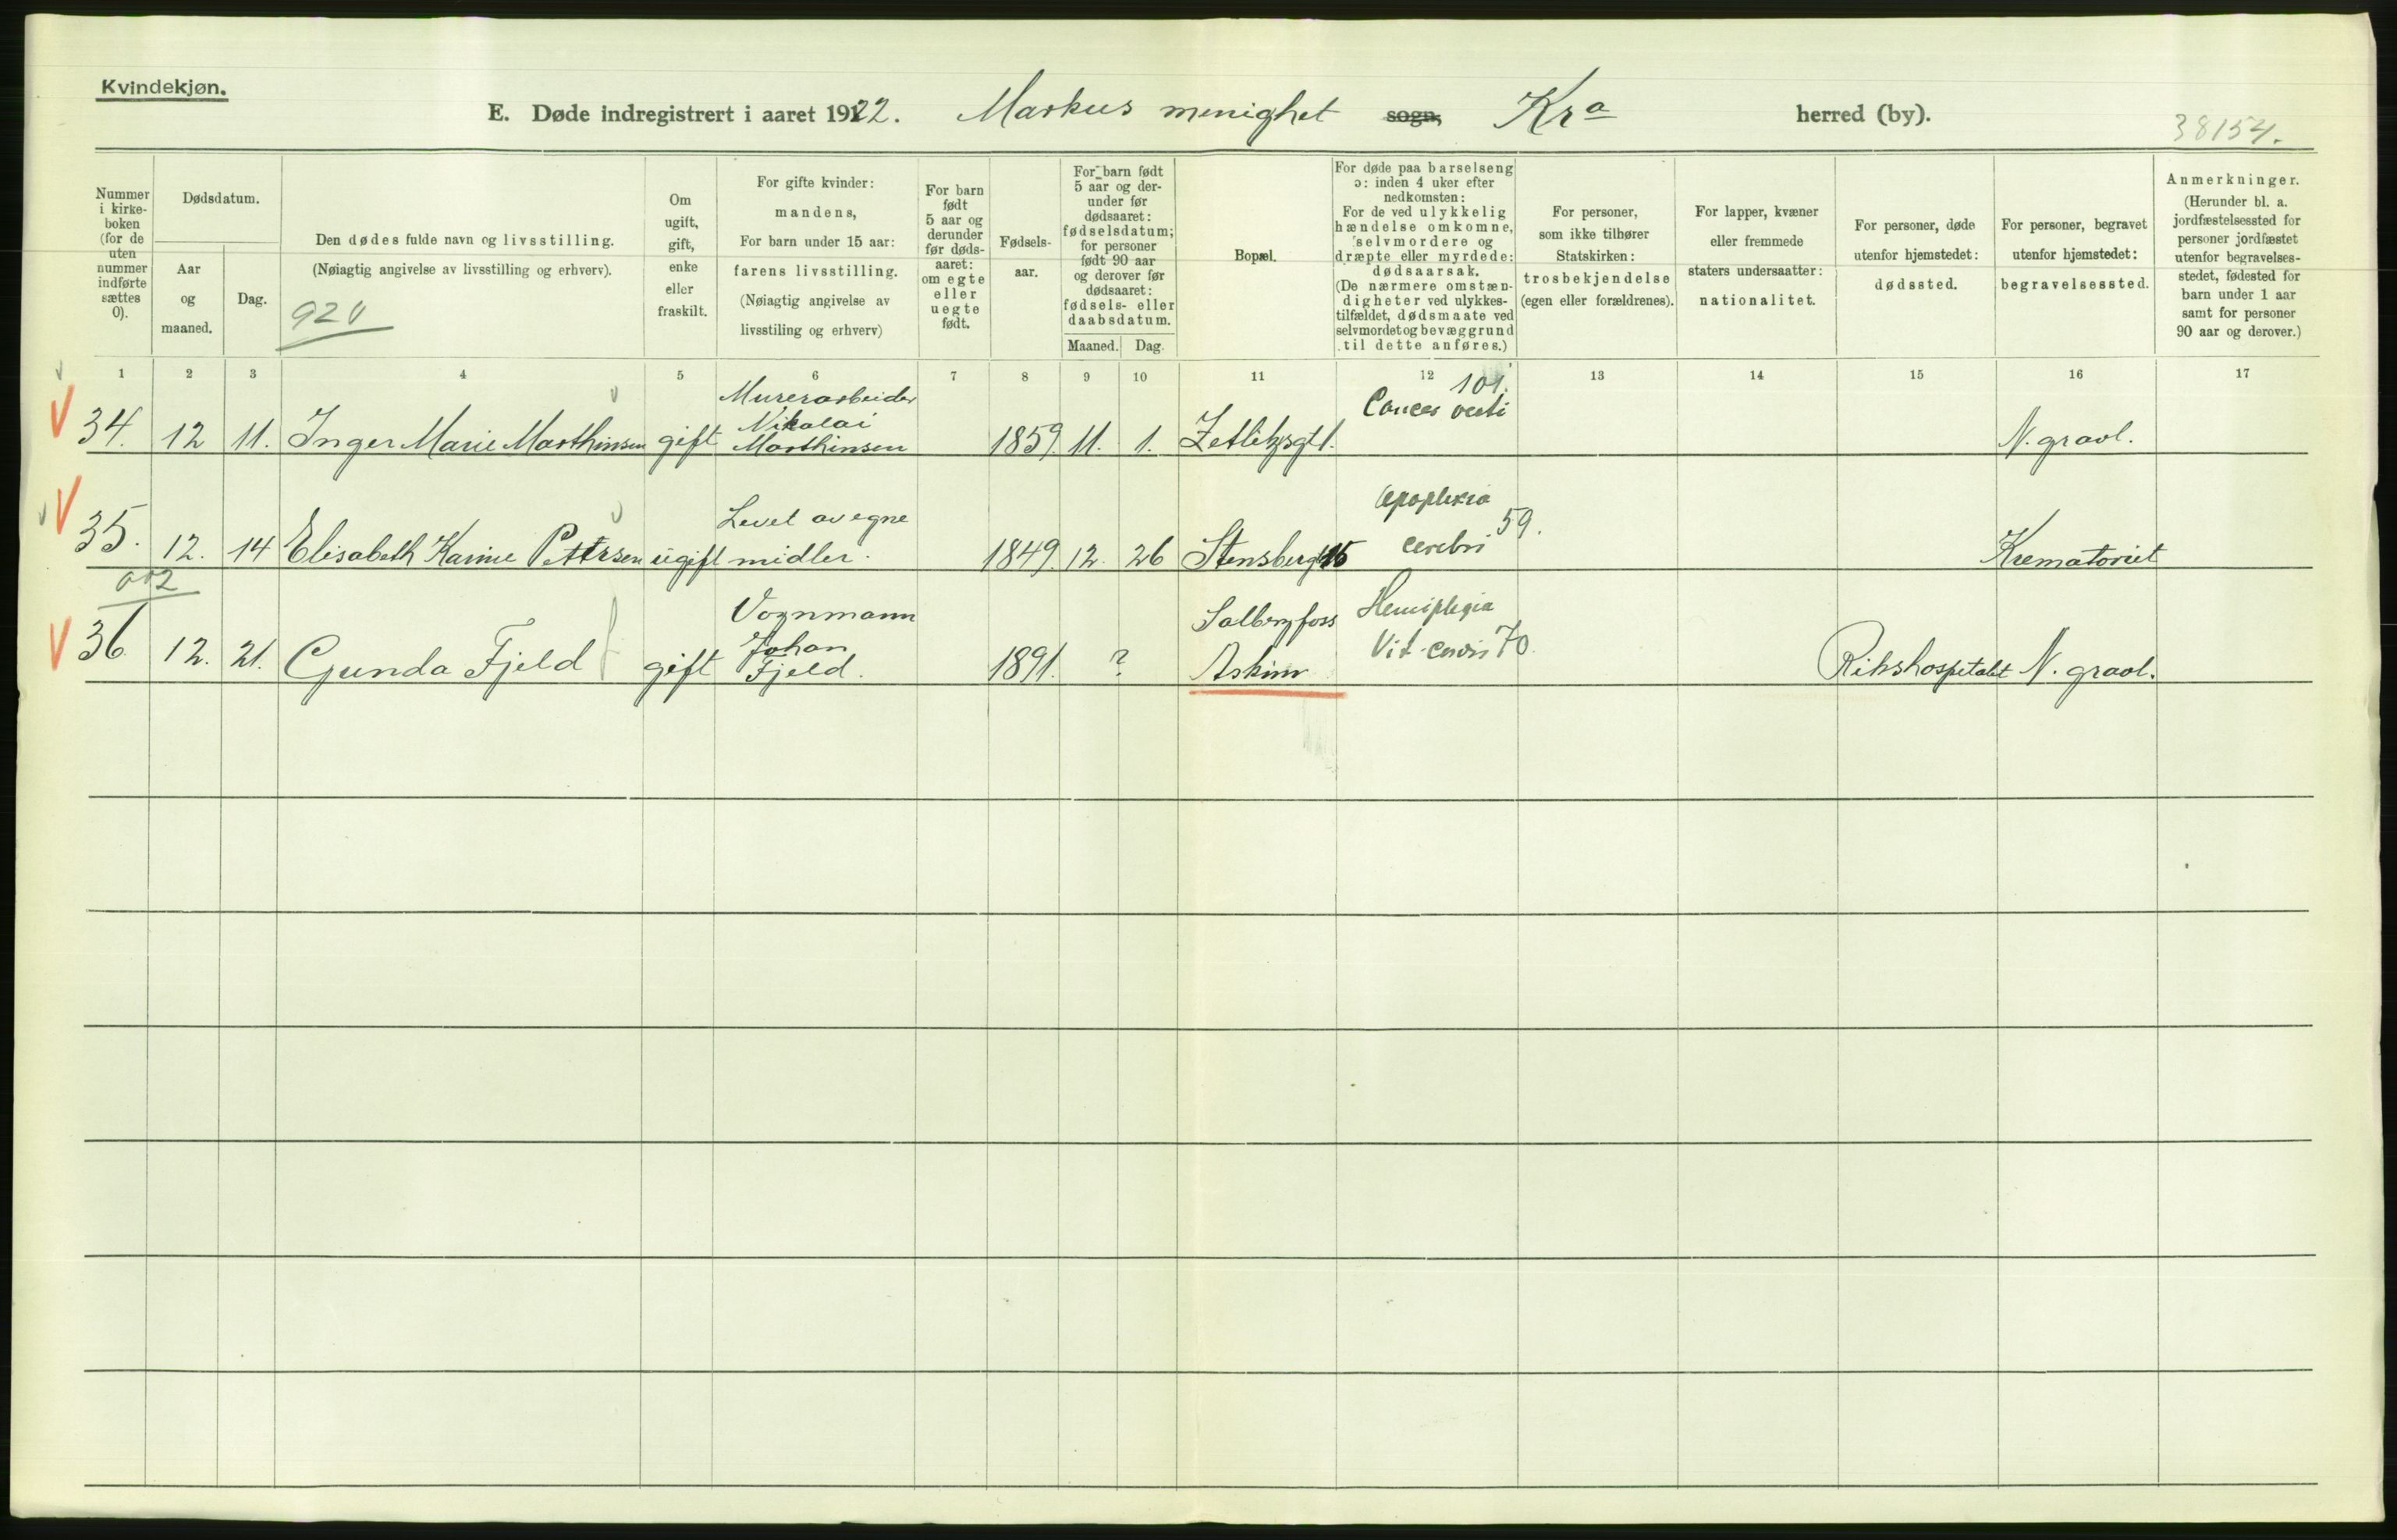 Kvindekjøn.
E. Døde indregistrert i aaret 1922. Markus menighet sogn, Kra herred (by).
38154.
Nummer i kirke-boken (for de uten nummer indførte sættes 0).
Dødsdatum.
Aar og maaned.
Dag.
Den dødes fulde navn og livsstilling.
(Nøiagtig angivelse av livsstilling og erhverv).
920
Om ugift, gift, enke eller fraskilt.
For gifte kvinder: mandens,
For barn under 15 aar: farens livsstilling.
(Nøiagtig angivelse av livsstiling og erhverv)
For barn født 5 aar og derunder før døds-aaret: om egte eller uegte født.
Fødsels-aar.
For barn født 5 aar og der-under før dødsaaret: fødselsdatum; for personer født 90 aar og derover før dødsaaret: fødsels- eller daabsdatum.
Maaned. Dag.
Bopæl.
For døde paa barselseng ɔ: inden 4 uker efter nedkomsten:
For de ved ulykkelig hændelse omkomne, selvmordere og dræpte eller myrdede: dødsaarsak.
(De nærmere omstæn-digheter ved ulykkes-tilfældet, dødsmaate ved selvmordet og bevæggrund til dette anføres.)
For personer, som ikke tilhører Statskirken: trosbekjendelse (egen eller forældrenes).
For lapper, kvæner eller fremmede staters undersaatter: nationalitet.
For personer, døde utenfor hjemstedet: dødssted.
For personer, begravet utenfor hjemstedet: begravelsessted.
Anmerkninger.
(Herunder bl. a. jordfæstelsessted for personer jordfæstet utenfor begravelses-stedet, fødested for barn under 1 aar samt for personer 90 aar og derover.)
1 2 3 4 5 6 7 8 9 10 11 12 13 14 15 16 17
34. 12 11. Inger Marie Marthinsen gift Murerarbeider Nikolai Marthinsen 1859. 11. 1. Zetlitzsgt 1. Cancer 101. N. gravl.
35. 12. 14 Elisabeth Karine Pettersen ugift Levet av egne midler. 1849. 12. 26 Stensberggt 15 Apoplexia cerebri 59. Krematoriet
36 12. 21. Gunda Fjeld gift Vognmann Johan Fjeld. 1891. ? Solbergfoss Askim Hemiplegia Vit. 70. Rikshospitalet N. gravl.